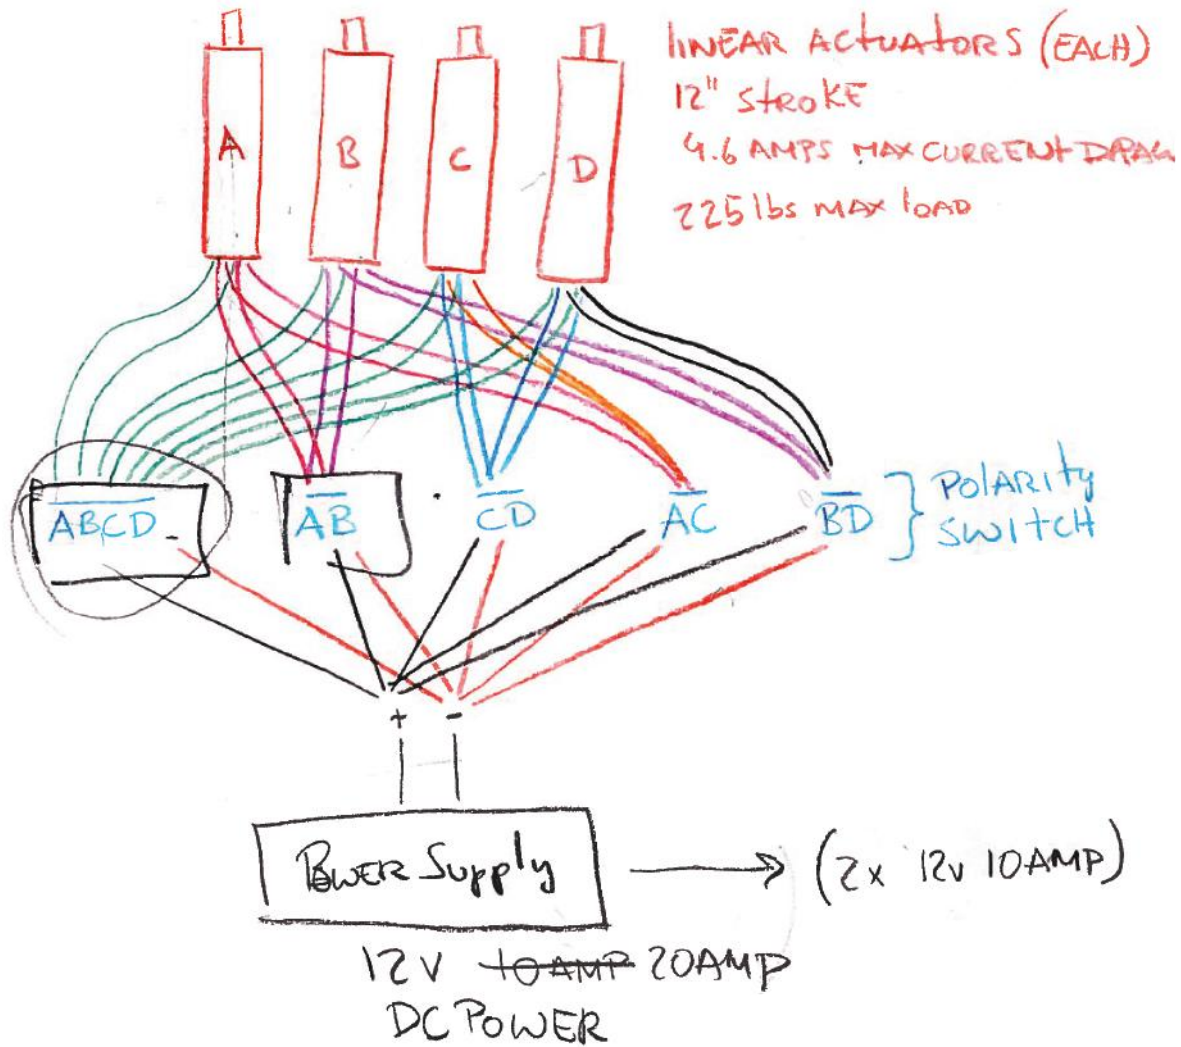 LINEAR ACTUATORS (EACH)
12" STROKE
4.6 AMPS MAX CURRENT DRAG
225 lbs MAX LOAD
A
B
C
D
ABCD
AB
CD
AC
BD
} POLARITY
SWITCH
+ -
POWER Supply
(2x 12v 10AMP)
12V 10AMP 20AMP
DC POWER